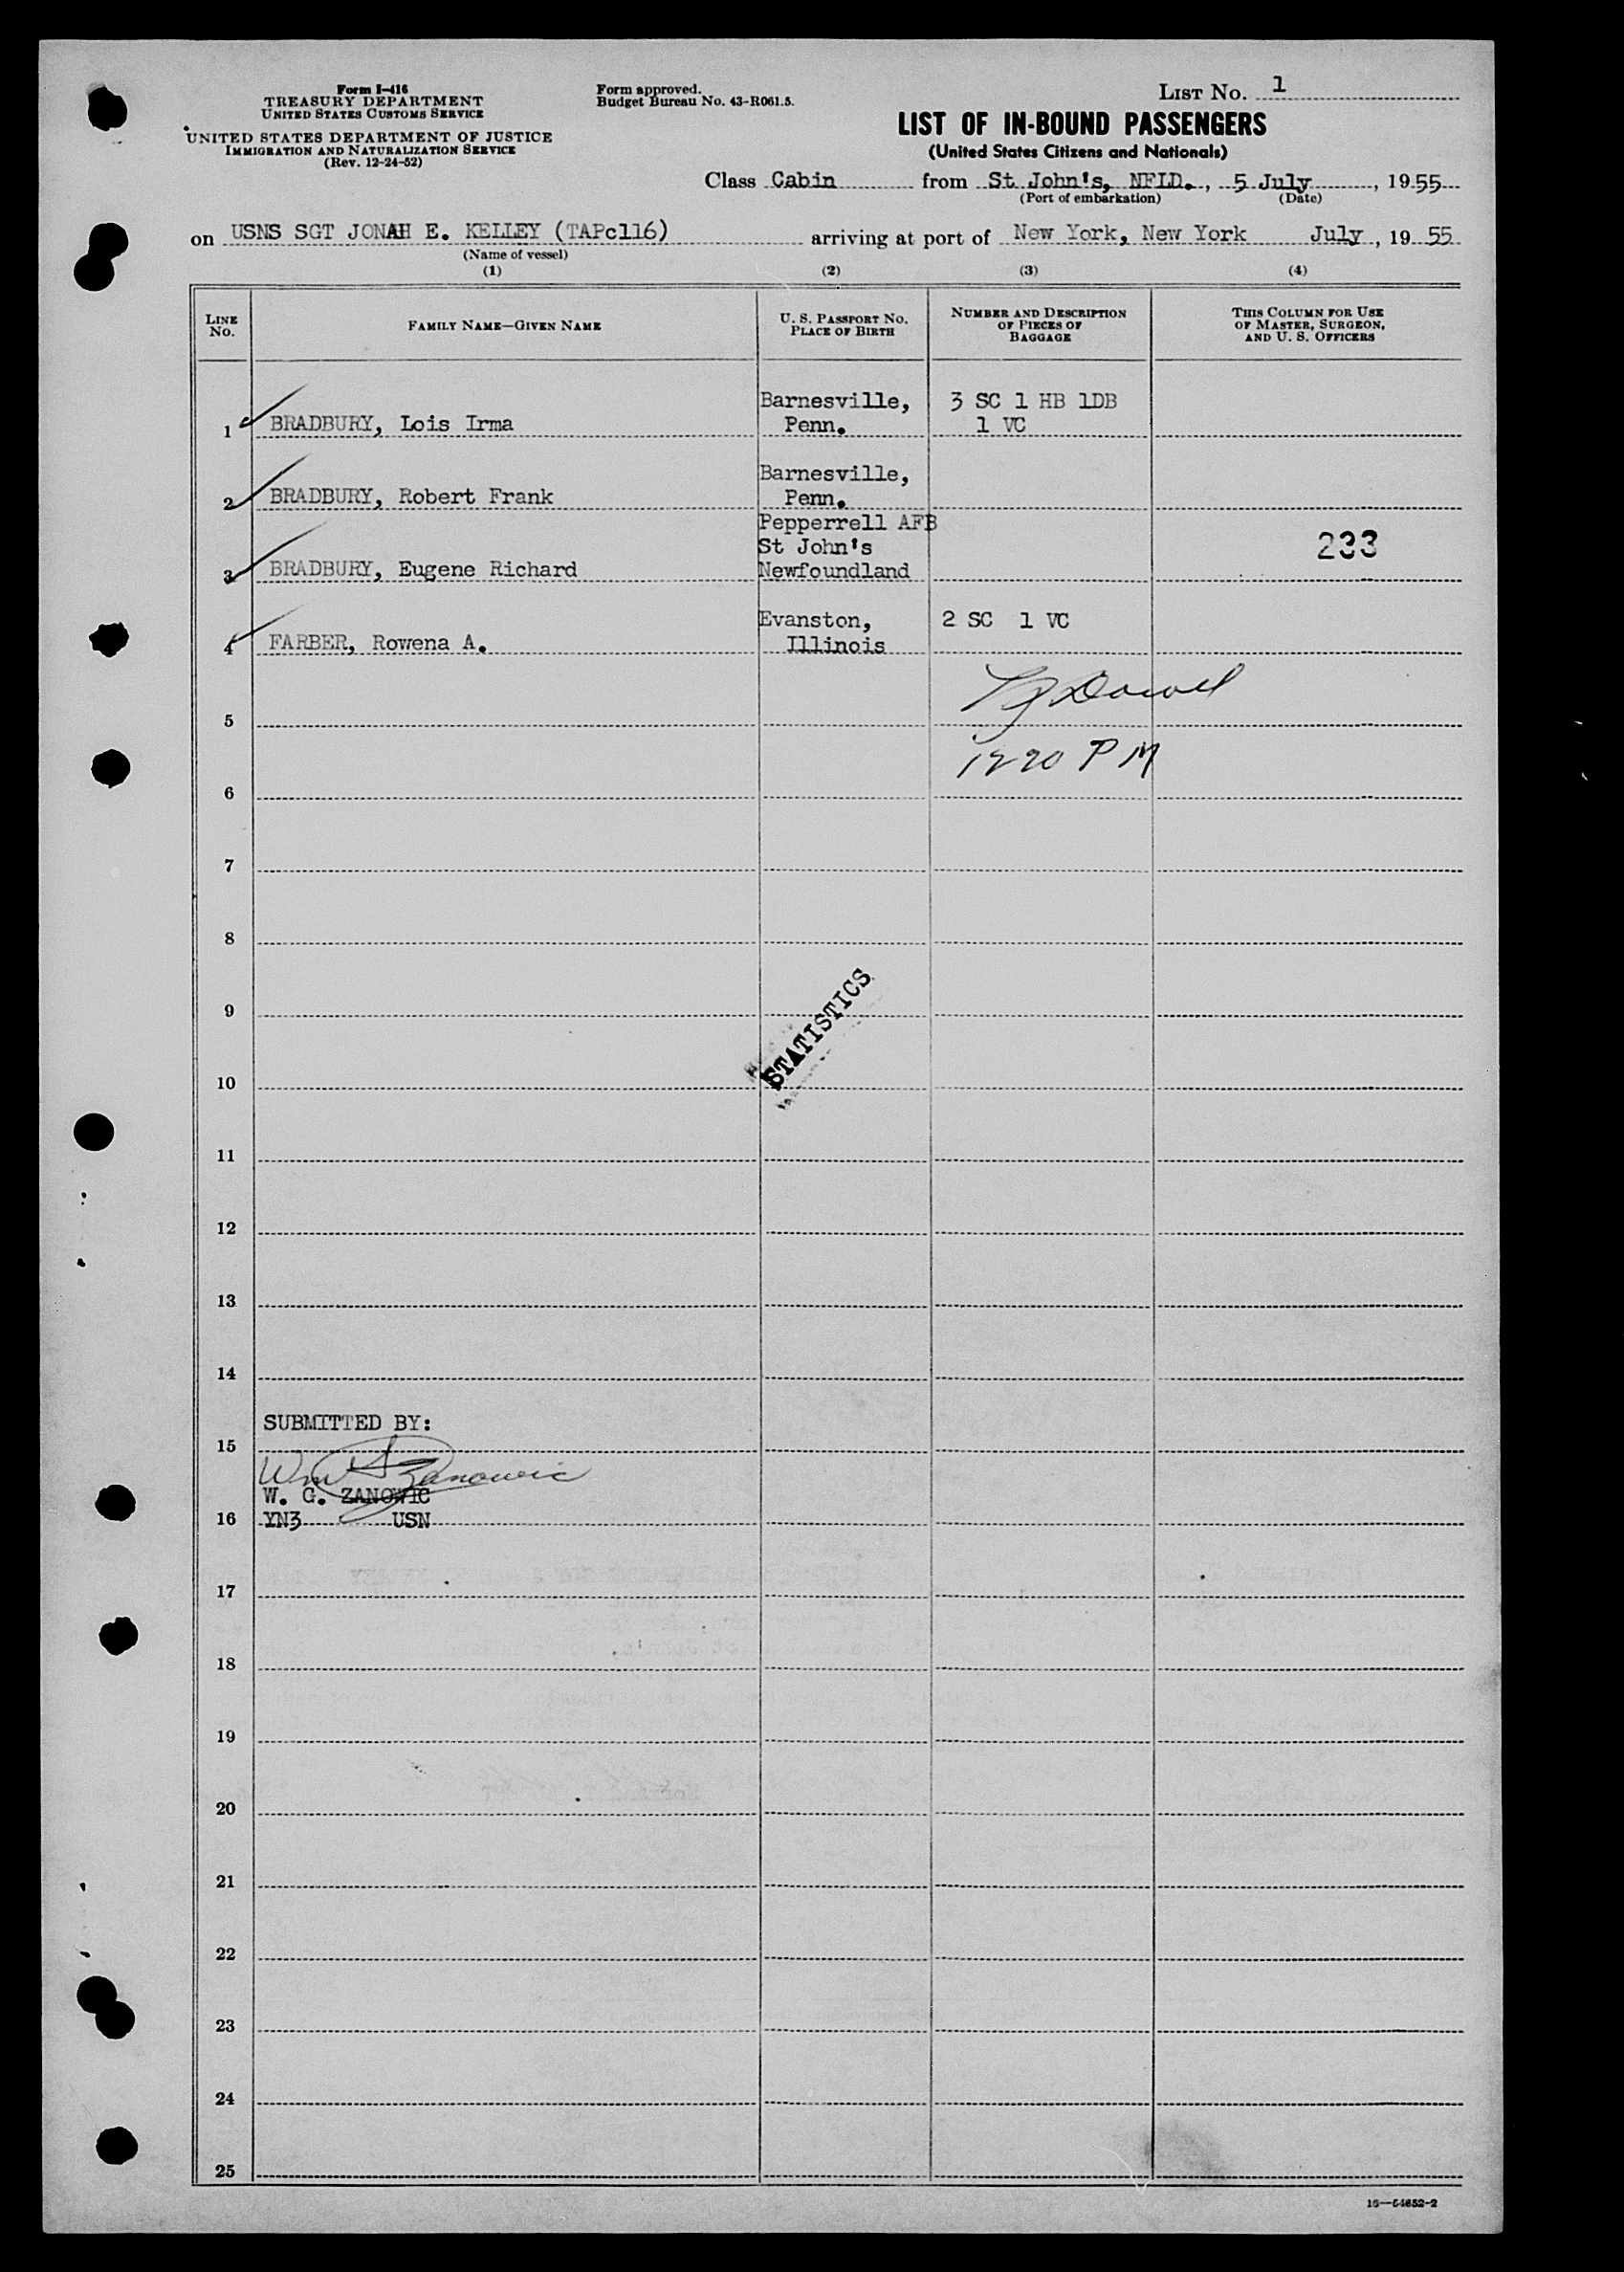 Form I-416
TREASURY DEPARTMENT
UNITED STATES CUSTOMS SERVICE
UNITED STATES DEPARTMENT OF JUSTICE
IMMIGRATION AND NATURALIZATION SERVICE
(Rev. 12-24-52)
Form approved.
Budget Bureau No. 43-R061.5.
LIST No. 1
LIST OF IN-BOUND PASSENGERS
(United States Citizens and Nationals)
Class Cabin from St John's, NFLD., 5 July, 1955
(Port of embarkation) (Date)
on USNS SGT JONAH E. KELLEY (TAPc116) arriving at port of New York, New York July, 19 55
(Name of vessel)
(1) (2) (3) (4)
LINE No.
FAMILY NAME—GIVEN NAME
U. S. PASSPORT No.
PLACE OF BIRTH
NUMBER AND DESCRIPTION
OF PIECES OF
BAGGAGE
THIS COLUMN FOR USE
OF MASTER, SURGEON,
AND U. S. OFFICERS
Barnesville, 3 SC 1 HB 1DB
1 BRADBURY, Lois Irma Penn. 1 VC
Barnesville,
2 BRADBURY, Robert Frank Penn.
Pepperrell AFB
St John's 233
3 BRADBURY, Eugene Richard Newfoundland
Evanston, 2 SC 1 VC
4 FARBER, Rowena A. Illinois
5
1220 PM
6
7
8
9
STATISTICS
10
11
12
13
14
SUBMITTED BY:
15
Wm G Zanowic
W. G. ZANOWIC
16 YN3 USN
17
18
19
20
21
22
23
24
25
16—54652-2